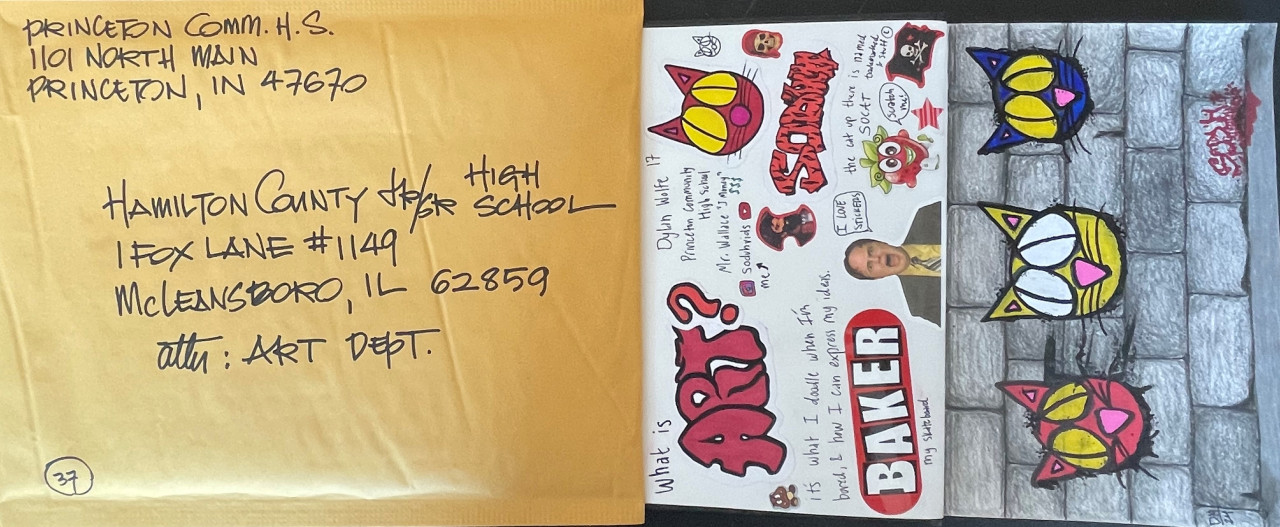 PRINCETON COMM. H.S.
1101 NORTH MAIN
PRINCETON, IN 47670
HAMILTON COUNTY JR/SR HIGH SCHOOL
1 FOX LANE #1149
MCLEANSBORO, IL 62859
attn: ART DEPT.
37
What is
ART?
it's what I doodle when I'm
bored, & how I can express my ideas.
BAKER
my skateboard
Dylan Wolfe 17
Princeton Community
High School
Mr. Wallace "J Money"
$$$
me
I LOVE
STICKERS
the cat up there is named
SOCAT
scratch
me!